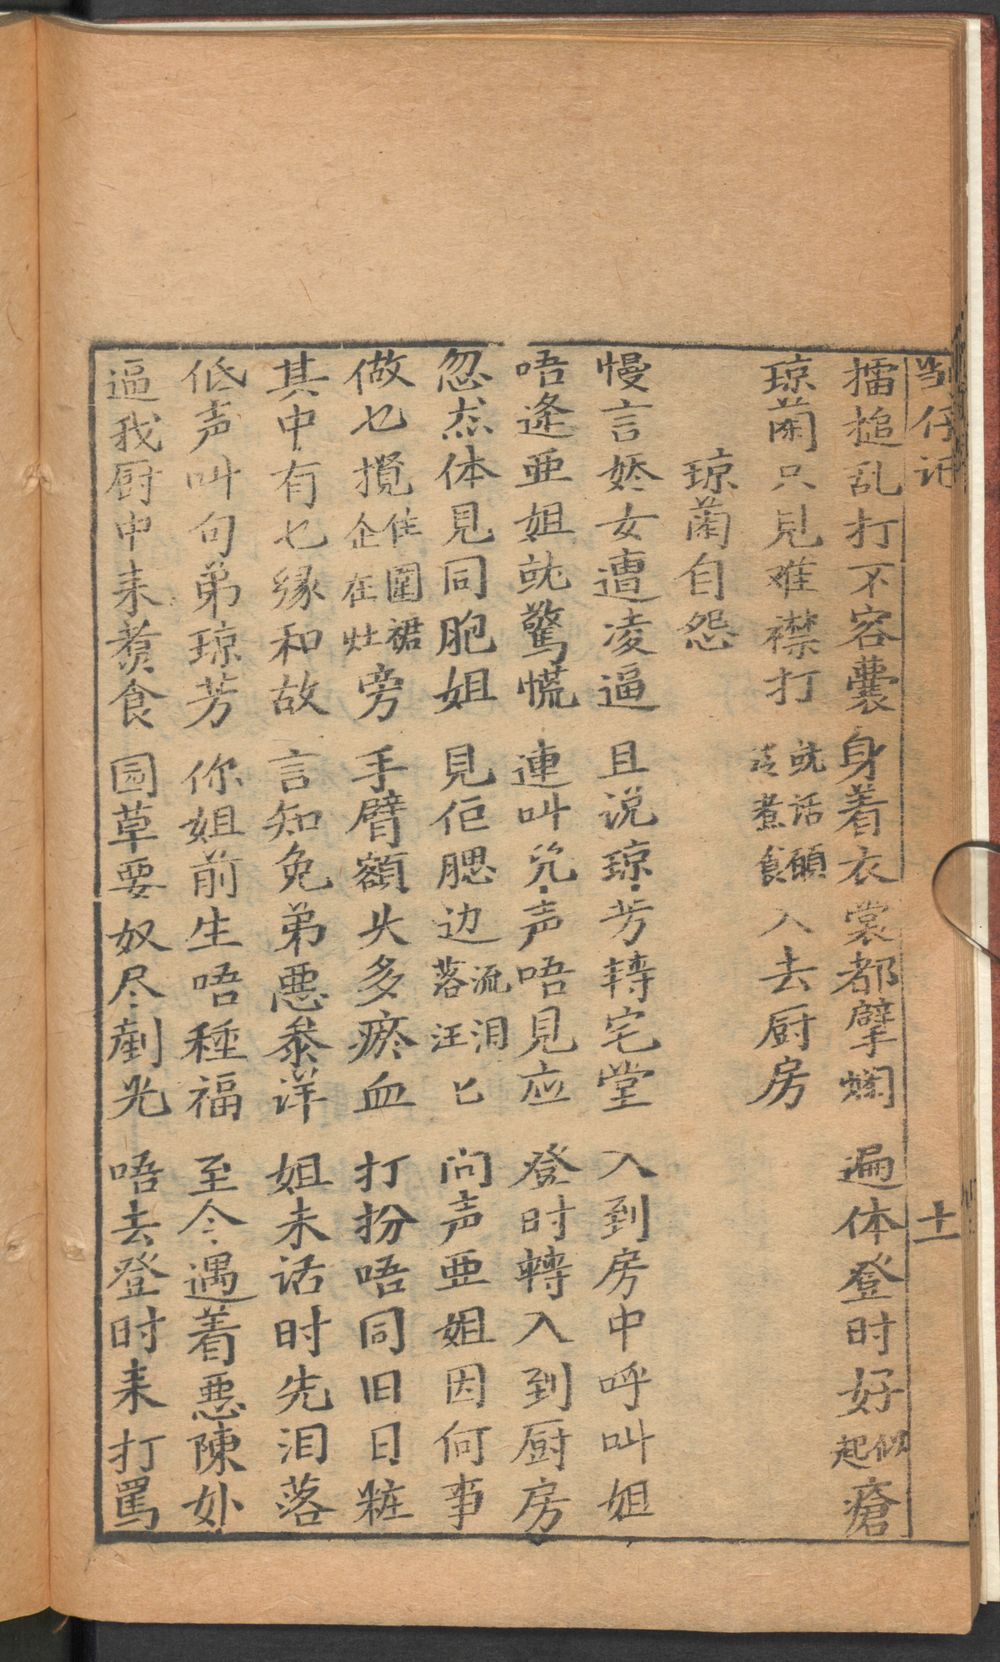 刍仔记 十一
擂搥乱打不容囊 身着衣裳都擘烂 遍体登时好似起瘡
琼蘭只見难襟打 就话願凌煮食入去厨房
琼蘭自怨
慢言嫁女遭凌逼 且说琼芳轉宅堂 入到房中呼叫姐
唔逢亜姐就驚慌 連叫几声唔見应 登时轉入到厨房
忽然体見同胞姐 見佢腮边流泪落汪匕 问声亜姐因何事
做乜揽住圍裙企在灶旁 手臂額头多瘀血 打扮唔同旧日粧
其中有乜缘和故 言知免弟悪黍洋 姐未话时先泪落
低声叫句弟琼芳 你姐前生唔種福 至今遇着悪陳妙
逼我厨中来煑食 园草要奴尽剷光 唔去登时来打罵